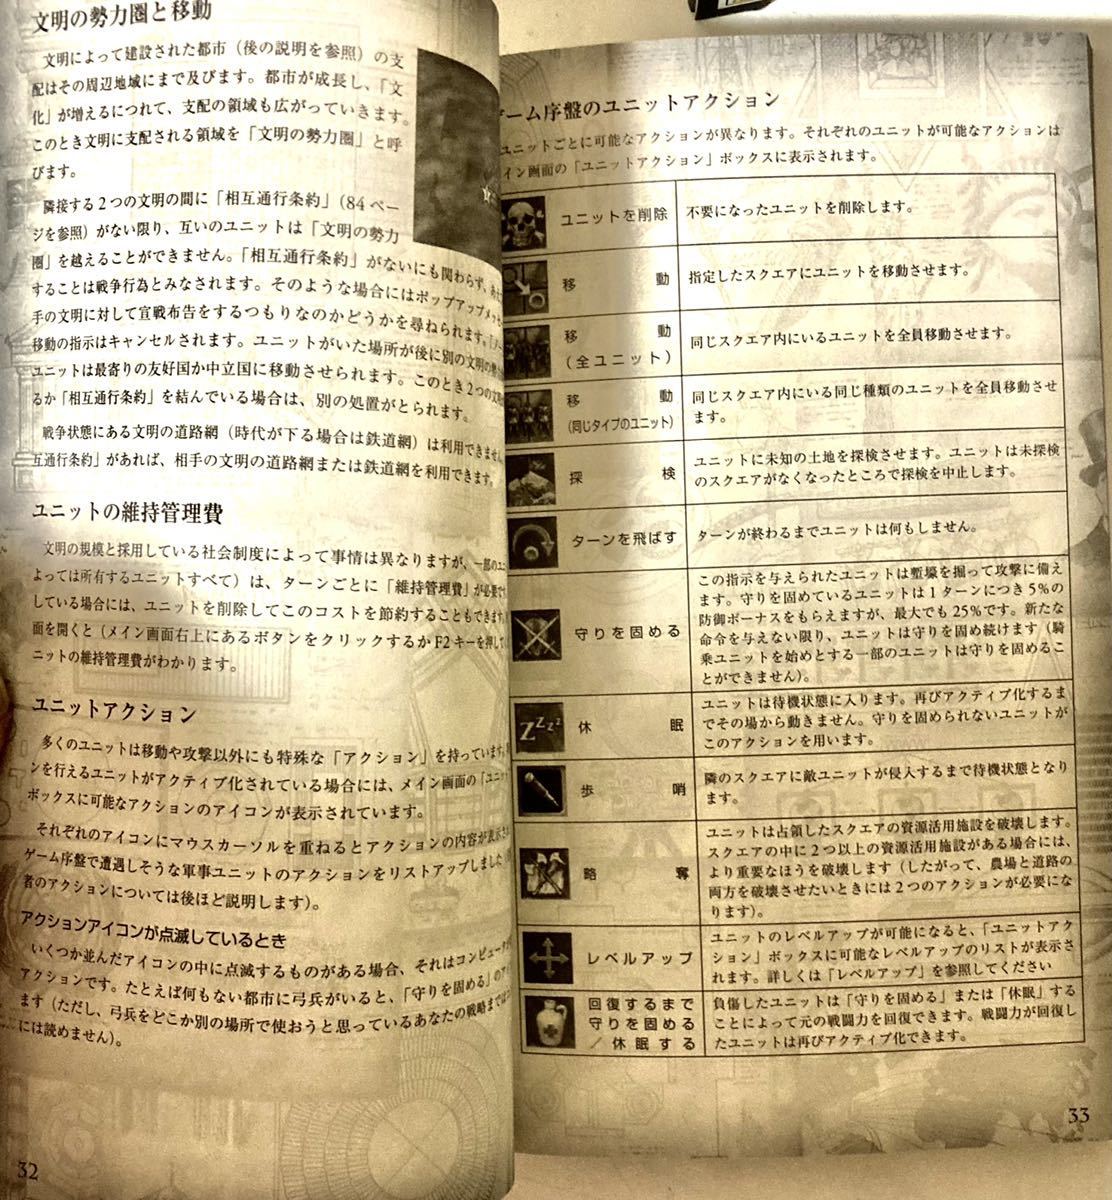 文明の勢力圏と移動
文明によって建設された都市（後の説明を参照）の支
配はその周辺地域にまで及びます。都市が成長し、「文
化」が増えるにつれて、支配の領域も広がっていきます。
このとき文明に支配される領域を「文明の勢力圏」と呼
びます。
隣接する2つの文明の間に「相互通行条約」（84ペー
ジを参照）がない限り、互いのユニットは「文明の勢力
圏」を越えることができません。「相互通行条約」がないにも関わらず、
することは戦争行為とみなされます。そのような場合にはポップアップメッセ
手の文明に対して宣戦布告をするつもりなのかどうかを尋ねられます。
移動の指示はキャンセルされます。ユニットがいた場所が後に別の文明の
ユニットは最寄りの友好国か中立国に移動させられます。このとき2つの文
るか「相互通行条約」を結んでいる場合は、別の処置がとられます。
戦争状態にある文明の道路網（時代が下る場合は鉄道網）は利用できません
互通行条約」があれば、相手の文明の道路網または鉄道網を利用できます。
ユニットの維持管理費
文明の規模と採用している社会制度によって事情は異なりますが、一部のユ
よっては所有するユニットすべて）は、ターンごとに「維持管理費」が必要で
している場合には、ユニットを削除してこのコストを節約することもできます
面を開くと（メイン画面右上にあるボタンをクリックするかF2キーを押して
ニットの維持管理費がわかります。
ユニットアクション
多くのユニットは移動や攻撃以外にも特殊な「アクション」を持っています。
ンを行えるユニットがアクティブ化されている場合には、メイン画面の「ユニッ
ボックスに可能なアクションのアイコンが表示されています。
それぞれのアイコンにマウスカーソルを重ねるとアクションの内容が表示さ
ゲーム序盤で遭遇しそうな軍事ユニットのアクションをリストアップしました
者のアクションについては後ほど説明します）。
アクションアイコンが点滅しているとき
いくつか並んだアイコンの中に点滅するものがある場合、それはコンピュータ
アクションです。たとえば何もない都市に弓兵がいると、「守りを固める」のア
ます（ただし、弓兵をどこか別の場所で使おうと思っているあなたの戦略まで
には読めません）。
32
ゲーム序盤のユニットアクション
ユニットごとに可能なアクションが異なります。それぞれのユニットが可能なアクションは
イン画面の「ユニットアクション」ボックスに表示されます。
ユニットを削除
不要になったユニットを削除します。
移動
指定したスクエアにユニットを移動させます。
移動
（全ユニット）
同じスクエア内にいるユニットを全員移動させます。
移動
（同じタイプのユニット）
同じスクエア内にいる同じ種類のユニットを全員移動させ
ます。
探検
ユニットに未知の土地を探検させます。ユニットは未探検
のスクエアがなくなったところで探検を中止します。
ターンを飛ばす
ターンが終わるまでユニットは何もしません。
守りを固める
この指示を与えられたユニットは塹壕を掘って攻撃に備え
ます。守りを固めているユニットは1ターンにつき5%の
防御ボーナスをもらえますが、最大でも25%です。新たな
命令を与えない限り、ユニットは守りを固め続けます（騎
乗ユニットを始めとする一部のユニットは守りを固めるこ
とができません）。
Zzzz
休眠
ユニットは待機状態に入ります。再びアクティブ化するま
でその場から動きません。守りを固められないユニットが
このアクションを用います。
歩哨
隣のスクエアに敵ユニットが侵入するまで待機状態となり
ます。
略奪
ユニットは占領したスクエアの資源活用施設を破壊します。
スクエアの中に2つ以上の資源活用施設がある場合には、
より重要なほうを破壊します（したがって、農場と道路の
両方を破壊させたいときには2つのアクションが必要にな
ります）。
レベルアップ
ユニットのレベルアップが可能になると、「ユニットアク
ション」ボックスに可能なレベルアップのリストが表示さ
れます。詳しくは「レベルアップ」を参照してください
回復するまで
守りを固める
／休眠する
負傷したユニットは「守りを固める」または「休眠」する
ことによって元の戦闘力を回復できます。戦闘力が回復し
たユニットは再びアクティブ化できます。
33